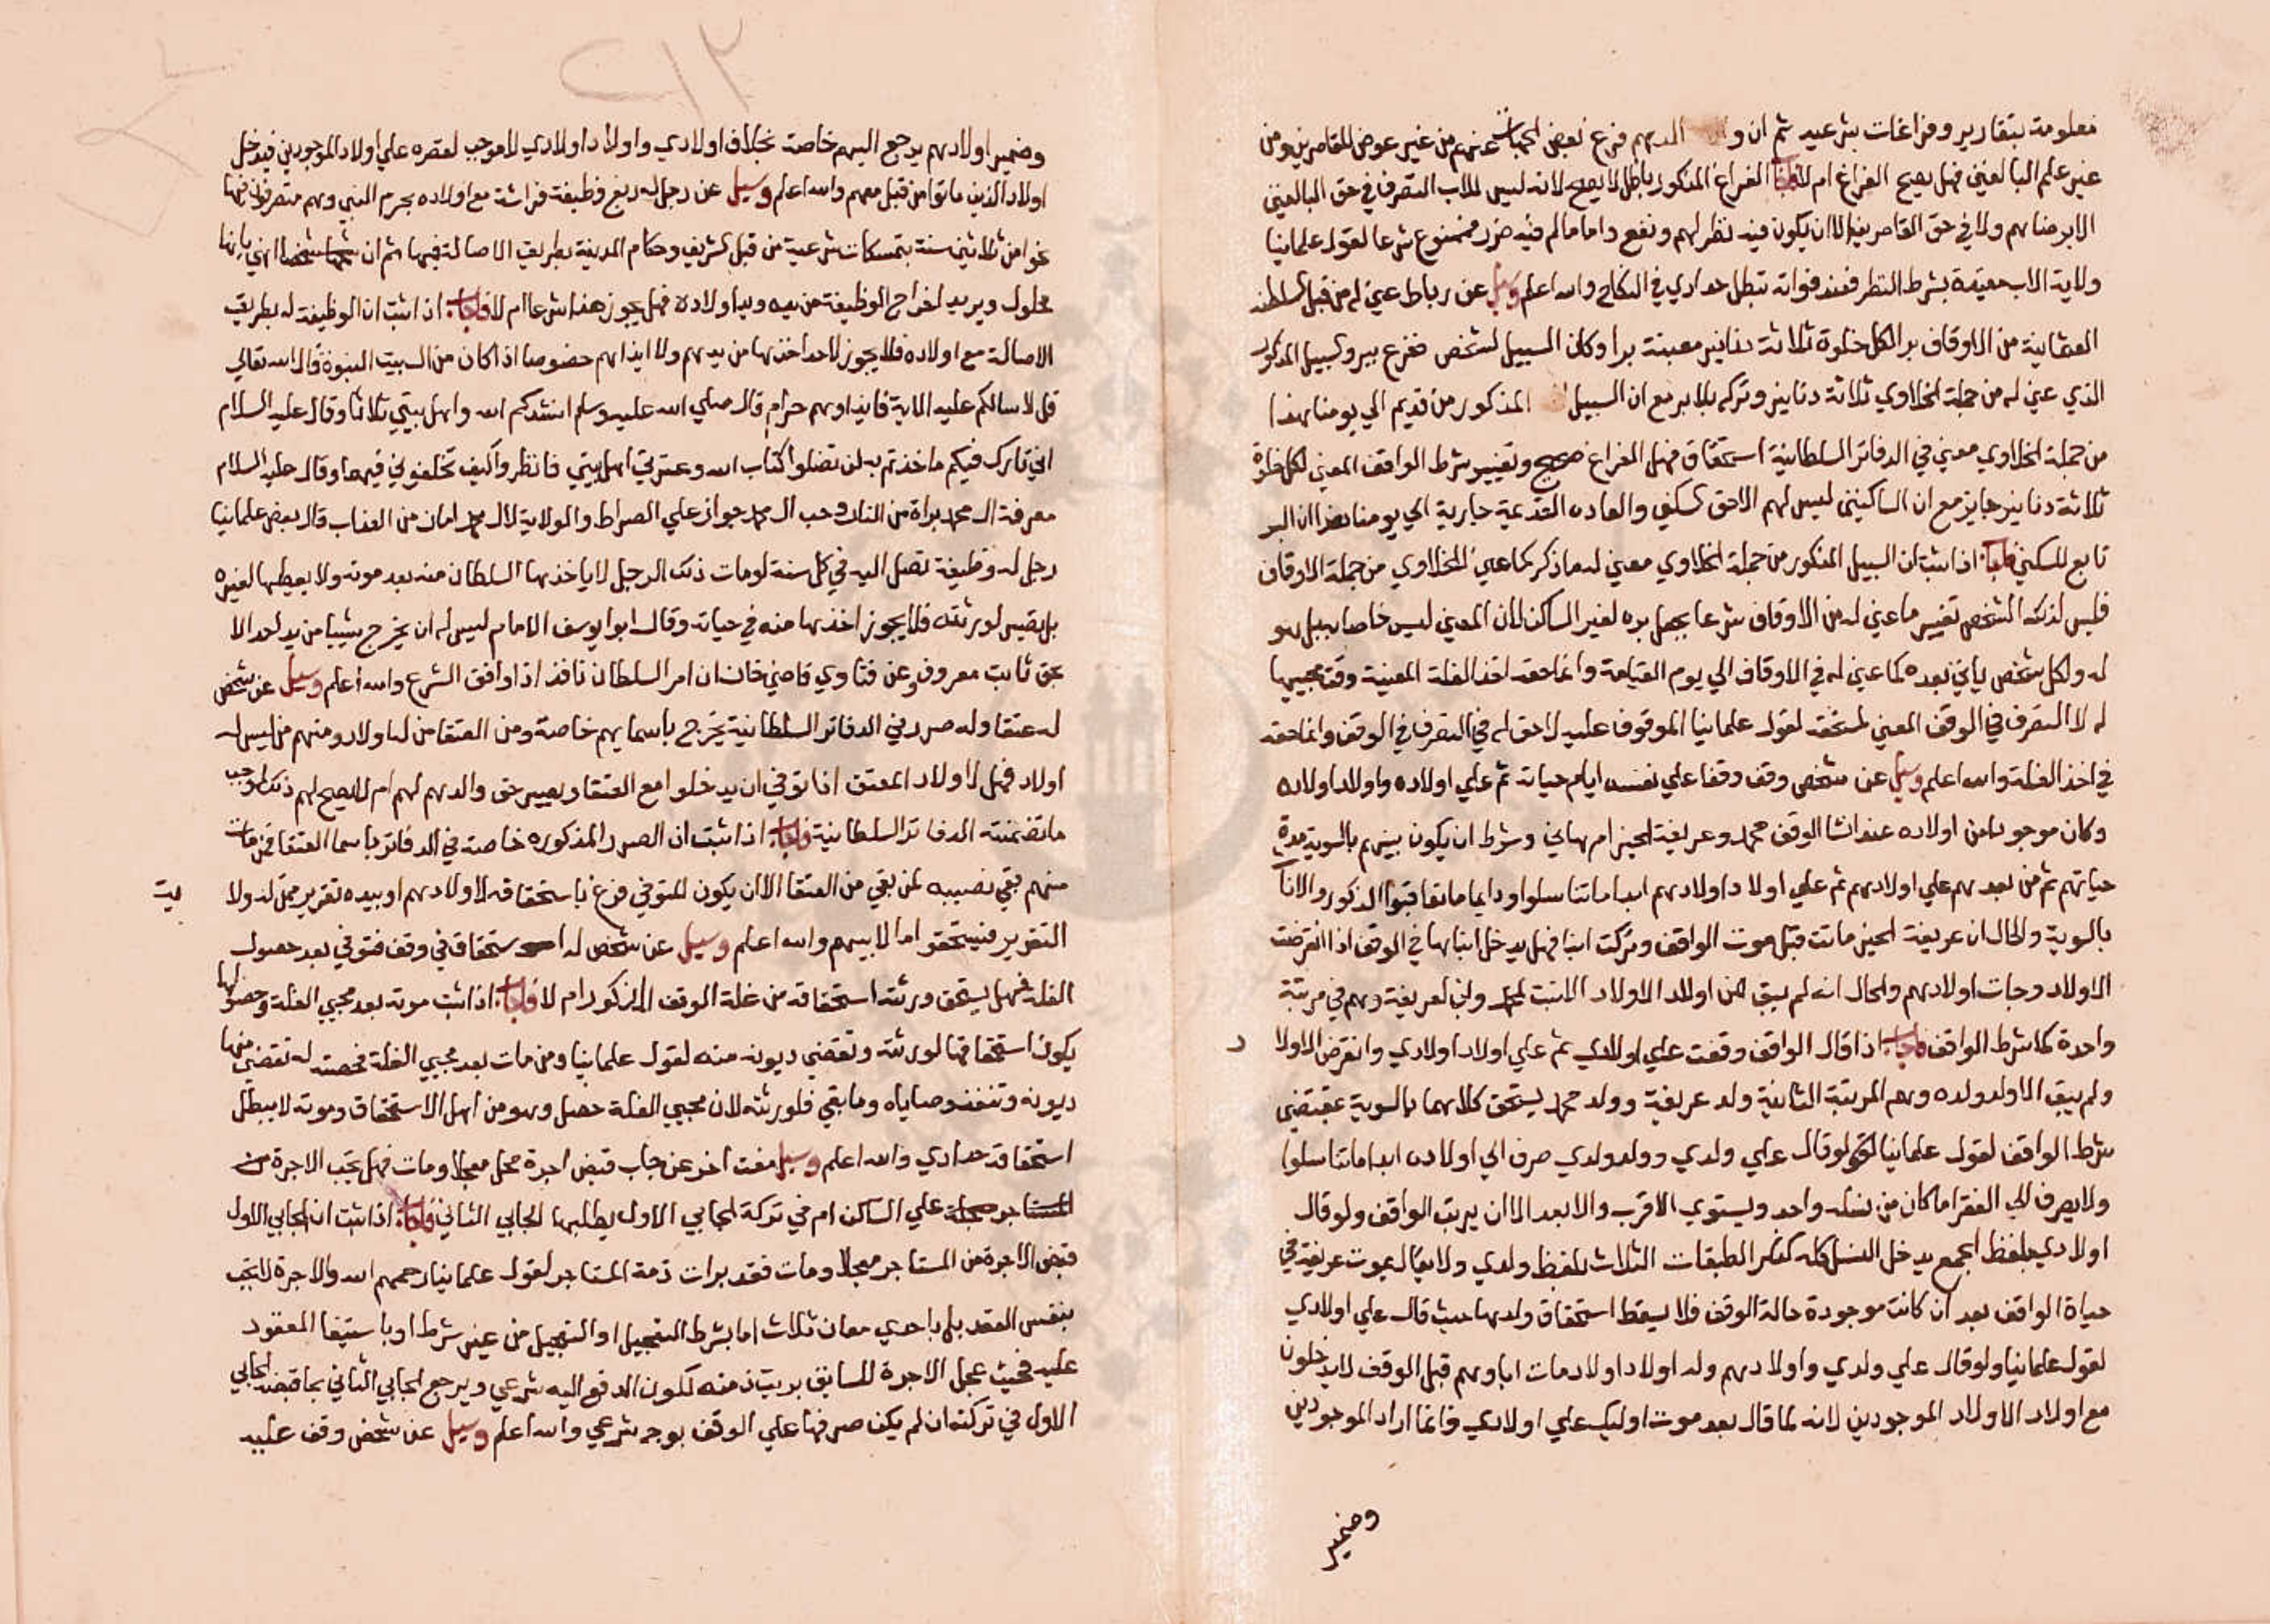 معلومة بتقارير وفراغات شرعيه ثم ان والدهم فرغ لبعض الجهات عنهم من غير عوض للقاصرين ومن
غير علم البالغين فهل يصح الفراغ ام لا فاجاب الفراغ المذكور باطل لا يصح لانه ليس للاب التصرف في حق البالغين
الا برضاهم ولا في حق القاصرين الا ان يكون فيه نظر لهم ونفع واما ما لم فيه ضرر ممنوع شرعا لقول علمائنا
ولاية الاب مقيدة بشرط النظر فعند فواته تبطل حدادي في النكاح والله اعلم وسيل عن رباط عين له من قبل السلطنه
العثمانية من الاوقاف بر لكل خلوة ثلاثة دنانير معينة برا وكان السبيل لشخص ففرغ ببر والسبيل المذكور
الذي عين له من جملة الخلاوي ثلاثة دنانير وتركه بلا بر مع ان السبيل المذكور من قديم الي يومنا هذا
من جملة الخلاوي معين في الدفاتر السلطانية استحقاق فهل الفراغ صحيح وتغيير شرط الواقف المعين لكل خلوة
ثلاثة دنانير جايز مع ان الساكنين ليس لهم الا حق السكني والعاده القديمة جارية الي يومنا هذا ان البر
تابع للسكني فاجاب اذا ثبت ان السبيل المذكور من جملة الخلاوي معين له ما ذكر كما عين للخلاوي من جملة الاوقاف
فليس لذلك الشخص تغيير ما عين له من الاوقاف شرعا بجعل بره لغير الساكن لان المعين ليس خاصا به بل هو
له ولكل شخص ياتي بعده كما عين له في الاوقاف الي يوم القيامة وانما حقه اخذ الغلة المعينة وقت مجيها
له لا التصرف في الوقف المعين لمستحقه لقول علمائنا الموقوف عليه لا حق له في التصرف في الوقف وانما حقه
في اخذ الغلة والله اعلم وسيل عن شخص وقف وقفا علي نفسه ايام حياته ثم علي اولاده واولاد اولاده
وكان موجودا من اولاده عند انشا الوقف محمد وعريفة الخير ام هاني وشرط ان يكون بينهم بالسوية مدة
حياتهم ثم من بعدهم علي اولادهم ثم علي اولاد اولادهم ابدا ما تناسلوا ودايما ما تعاقبوا الذكور والاناث
بالسوية والحال ان عريفة الخير ماتت قبل موت الواقف وتركت ابنا فهل يدخل ابنها في الوقف اذا انقرضت
الاولاد وجات اولادهم والحال انه لم يبق من اولاد الاولاد الا بنت لمحمد وابن لعريفة وهم في مرتبة
واحدة كما شرط الواقف فاجاب اذا قال الواقف وقفت علي اولادي ثم علي اولاد اولادي وانقرض الاولا د
ولم يبق الا ولد ولده وهم المرتبة الثانية ولد عريفة وولد محمد يستحق كلاهما بالسوية بمقتضي
شرط الواقف لقول علمائنا لو قال علي ولدي وولد ولدي صرف الي اولاده ابدا ما تناسلوا
ولا يصرف الي الفقرا ما كان من نسله واحد ويستوي الاقرب والابعد الا ان يرتب الواقف ولو قال
اولادي بلفظ الجمع يدخل النسل كله كذكر الطبقات الثلاث بلفظ ولدي ولا يقال بموت عريفة في
حياة الواقف بعد ان كانت موجودة حالة الوقف فلا يسقط استحقاق ولدها حيث قال علي اولادي
لقول علمائنا ولو قال علي ولدي واولادهم وله اولاد اولاد مات اباوهم قبل الوقف لا يدخلون
مع اولاد الاولاد الموجودين لانه لما قال بعد موت اوليك علي اولادي فانما اراد الموجودين
وضمير
وضمير اولادهم يرجع اليهم خاصة بخلاف اولادي واولاد اولادي لا موجب لقصره علي اولاد الموجودين فيدخل
اولاد الذين ماتوا من قبل معهم والله اعلم وسيل عن رجل له ربع وظيفة فراشة مع اولاده بحرم النبي وهم متصرفون فيها
نحوا من ثلاثين سنة بتمسكات شرعية من قبل الشريف وحكام المدينة بطريق الاصالة فيها ثم ان شخصا انهي بانها
محلول ويريد اخراج الوظيفة من يده ويد اولاده فهل يجوز هذا شرعا ام لا فاجاب اذا ثبت ان الوظيفة له بطريق
الاصالة مع اولاده فلا يجوز لاحد اخذها من يدهم ولا ايذاهم خصوصا اذا كان من البيت النبوة قال الله تعالي
قل لا اسالكم عليه الاية فايذاوهم حرام قال صلي الله عليه وسلم انشدكم الله واهل بيتي ثلاثا وقال عليه السلام
اني تارك فيكم ما اخذتم به لن تضلوا كتاب الله وعترتي اهل بيتي فانظروا كيف تخلفوني فيهما وقال عليه السلام
معرفة ال محمد براة من النار وحب ال محمد جواز علي الصراط والولاية لال محمد امان من العذاب وقال بعض علمائنا
رجل له وظيفة تصل اليه في كل سنة لو مات ذلك الرجل لا ياخذها السلطان منه بعد موته ولا يعطيها لغيره
بل تصير لورثته فلا يجوز اخذها منه في حياته وقال ابو يوسف الامام ليس له ان يخرج شيا من يد احد الا
بحق ثابت معروف وعن فتاوي قاضي خان ان امر السلطان نافذ اذا وافق الشرع والله اعلم وسيل عن شخص
له عتقا وله صر في الدفاتر السلطانية يخرج باسمايهم خاصة ومن العتقا من له اولاد ومنهم من ليس له
اولاد فهل لاولاد المعتق اذا توفي ان يدخلوا مع العتقا ويصير حق والدهم لهم ام لا يصح لهم ذلك لموجب
ما تضمنته الدفاتر السلطانية فاجاب اذا ثبت ان الصر المذكوره خاصة في الدفاتر باسما العتقا فمن مات
منهم بقي نصيبه لمن بقي من العتقا الا ان يكون للمتوفي فرغ باستحقاقه لاولادهم او بيده تقرير ممن له ولا يت
التقرير فيستحقوا ما لابيهم والله اعلم وسيل عن شخص له استحقاق في وقف فتوفي بعد حصول
الغلة فهل يستحق ورثته استحقاقه من غلة الوقف المذكور ام لا فاجاب اذا ثبت موته بعد مجي الغلة وحصولها
يكون استحقاقها لورثته وتقضي ديونه منه لقول علمائنا ومن مات بعد مجي الغلة فحصته له تقضي منها
ديونه وتنفذ وصاياه وما بقي فلورثته لان مجي الغلة حصل وهو من اهل الاستحقاق وموته لا يبطل
استحقاقه حدادي والله اعلم وسيل مفت اخر عن جاب قبض اجرة محل معجلا ومات فهل تجب الاجرة من
المستاجر علي الساكن ام في تركة الجابي الاول يطلبها الجابي الثاني فاجاب اذا ثبت ان الجابي الاول
قبض الاجرة من المستاجر معجلا ومات فقد برات ذمة المستاجر لقول علمائنا رحمهم الله والاجرة لا تجب
بنفس العقد بل باحدي معان ثلاث اما بشرط التعجيل او التعجيل من غير شرط او باستيفا المعقود
عليه فحيث عجل الاجرة للسابق بريت ذمته لكون الدفع اليه شرعي ويرجع الجابي الثاني بما قبضه الجابي
الاول في تركته ان لم يكن صرفها علي الوقف بوجه شرعي والله اعلم وسيل عن شخص وقف عليه